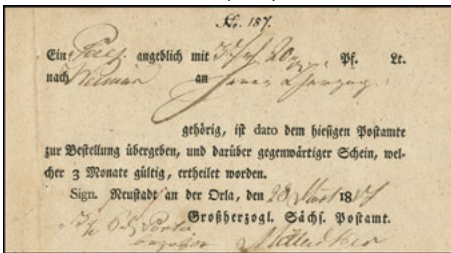 No. 187.
Ein Paq. angeblich mit 3 20 Pf. Lt.
nach Weimar an Herrn Herzog
gehörig, ist dato dem hiesigen Postamte
zur Bestellung übergeben, und darüber gegenwärtiger Schein, wel-
cher 3 Monate gültig, ertheilet worden.
Sign. Neustadt an der Orla, den 28 18
Großherzogl. Sächs. Postamt.